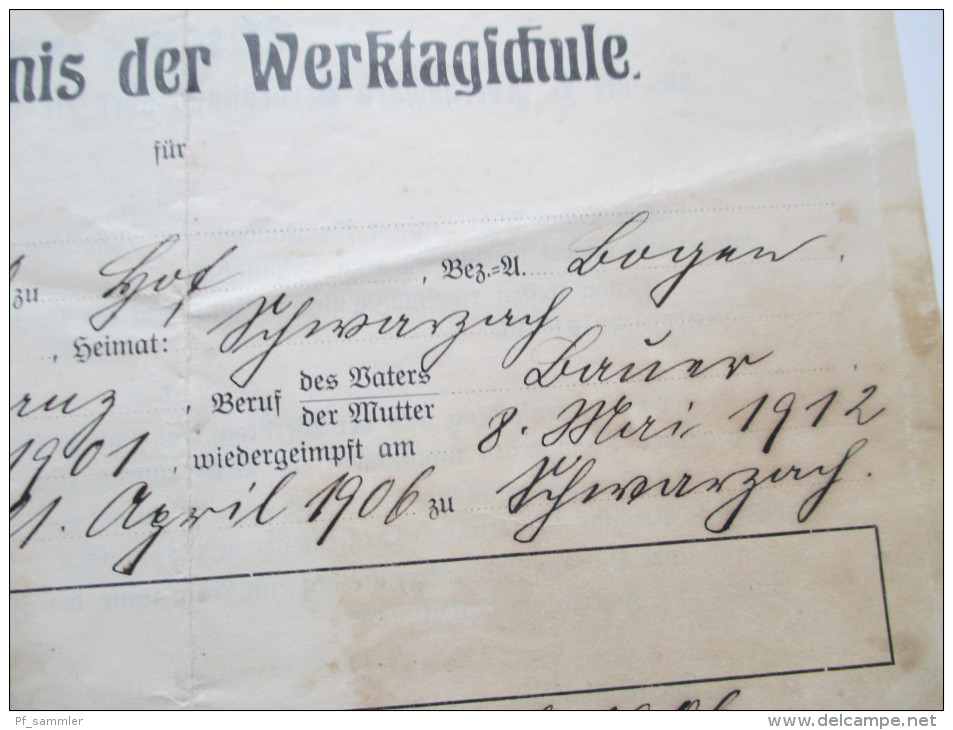 nis der Werktagschule.
für
zu Hof, Bez.=A. Bogen.
, Heimat: Schwarzach
anz, Beruf des Vaters Bauer.
der Mutter
1901, wiedergeimpft am 8. Mai 1912
21. April 1906 zu Schwarzach.
Pf_sammler
www.delcampe.net